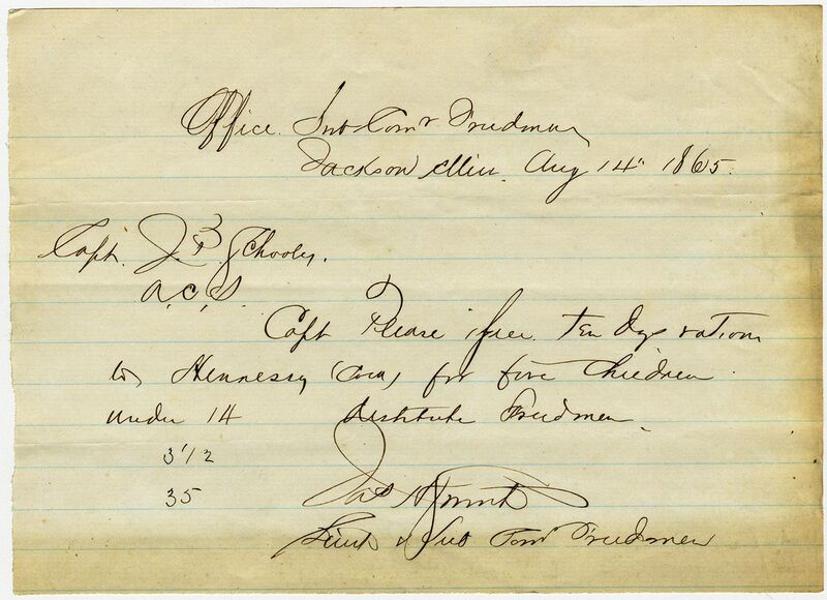 Office Sub Comr Freedmen
Jackson Miss. Aug 14" 1865.
Capt. J. B. Schooly.
A. C. S.
Capt Please issue ten dys rations
to Hennessy (Cold) for five Children
under 14 destitute Freedmen
3 1/2
35
Jas H
Lieut & Sub Com Freedmen